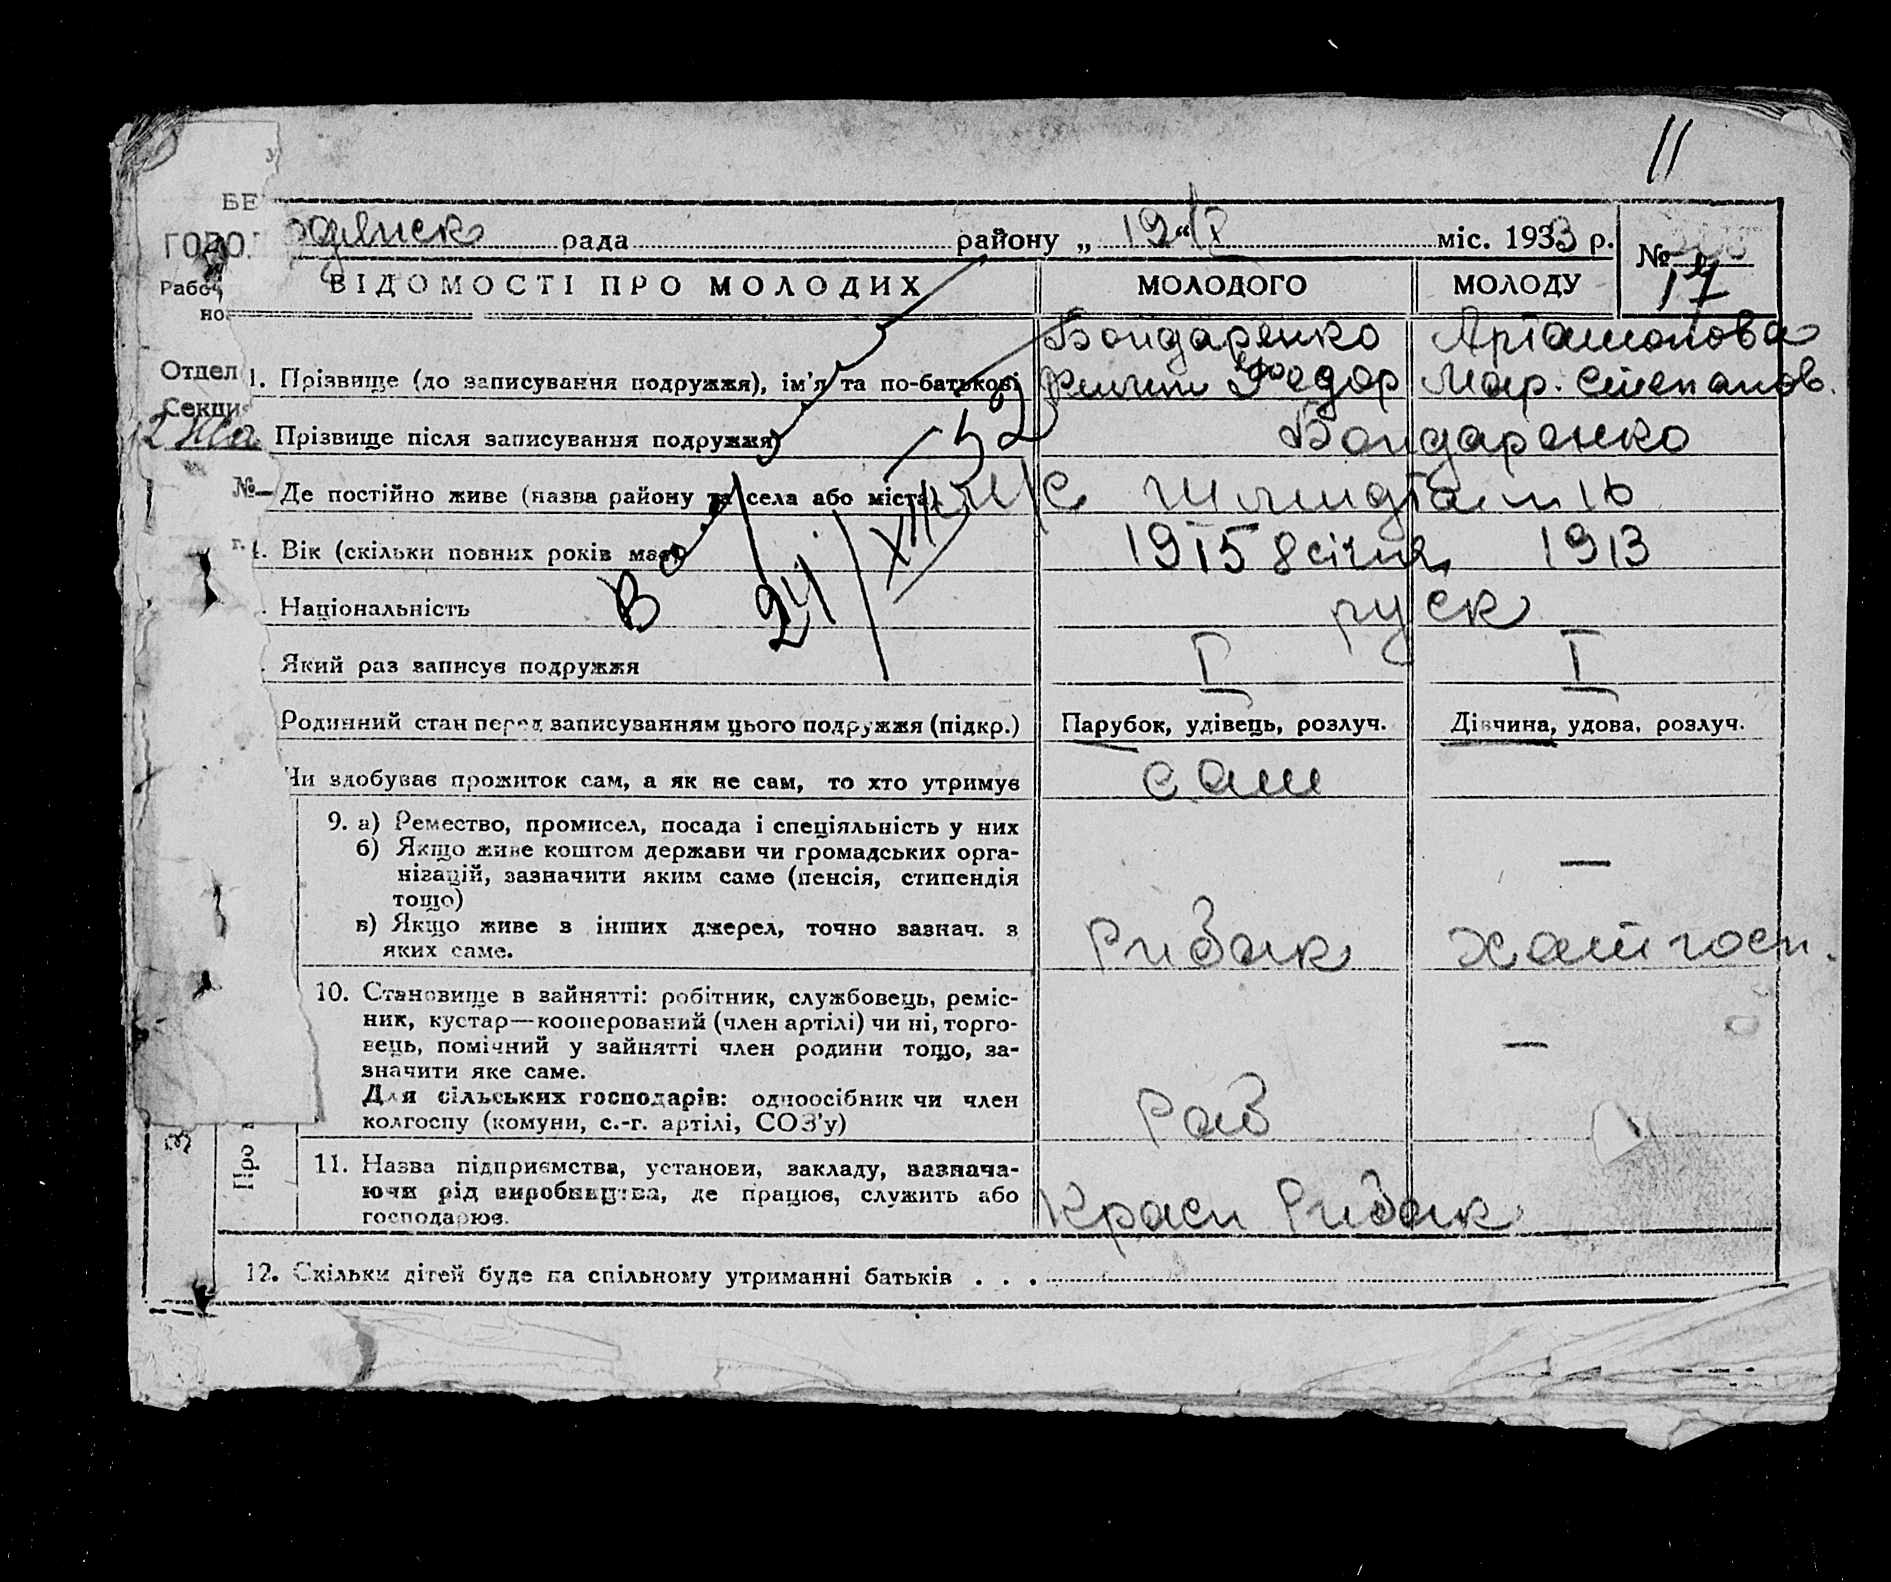 11
БЕ
ГОРОД
одянск рада району „ 19 “ міс. 1933 р.
№ 17
Рабоч
но
ВІДОМОСТІ ПРО МОЛОДИХ МОЛОДОГО МОЛОДУ
Бондаренко Артамонова
Отдел
1. Прізвище (до записування подружжя), ім'я та по-батькові Федор Мар. Степанов.
Секция
Прізвище після записування подружжя Бондаренко
№ Де постійно живе (назва району та села або міста)
г. 4. Вік (скільки повних років має) 1915 8 січня 1913
24/XII 52
Національність руск
Який раз записує подружжя I I
Родинний стан перед записуванням цього подружжя (підкр.) Парубок, удівець, розлуч. Дівчина, удова, розлуч.
Чи здобуває прожиток сам, а як не сам, то хто утримує сам
9. а) Ремество, промисел, посада і спеціяльність у них
б) Якщо живе коштом держави чи громадських орга-
нізацій, зазначити яким саме (пенсія, стипендія —
тощо)
в) Якщо живе з інших джерел, точно зазнач. з
яких саме. Рибак хат госп.
10. Становище в зайнятті: робітник, службовець, реміс-
ник, кустар—кооперований (член артілі) чи ні, торго-
вець, помічний у зайнятті член родини тощо, за- —
значити яке саме.
Для сільських господарів: одноосібник чи член
колгоспу (комуни, с.-г. артілі, СОЗ'у) Раб
Про
11. Назва підприємства, установи, закладу, зазнача-
ючи рід виробництва, де працює, служить або
господарює. Красн Рибак
12. Скільки дітей буде на спільному утриманні батьків . . .